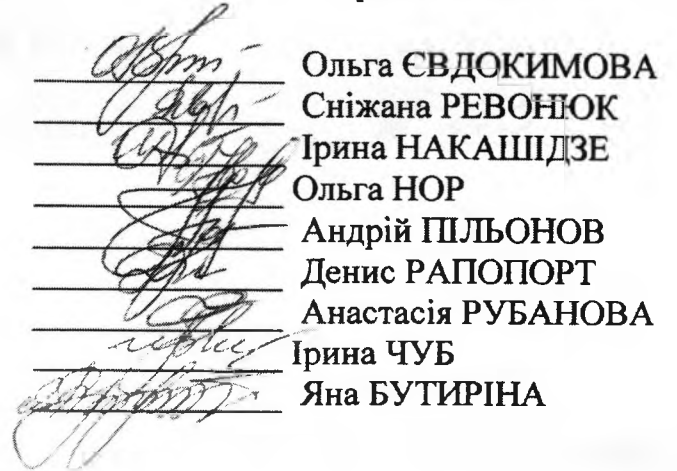 Ольга ЄВДОКИМОВА
Сніжана РЕВОНЮК
Ірина НАКАШІДЗЕ
Ольга НОР
Андрій ПІЛЬОНОВ
Денис РАПОПОРТ
Анастасія РУБАНОВА
Ірина ЧУБ
Яна БУТИРІНА